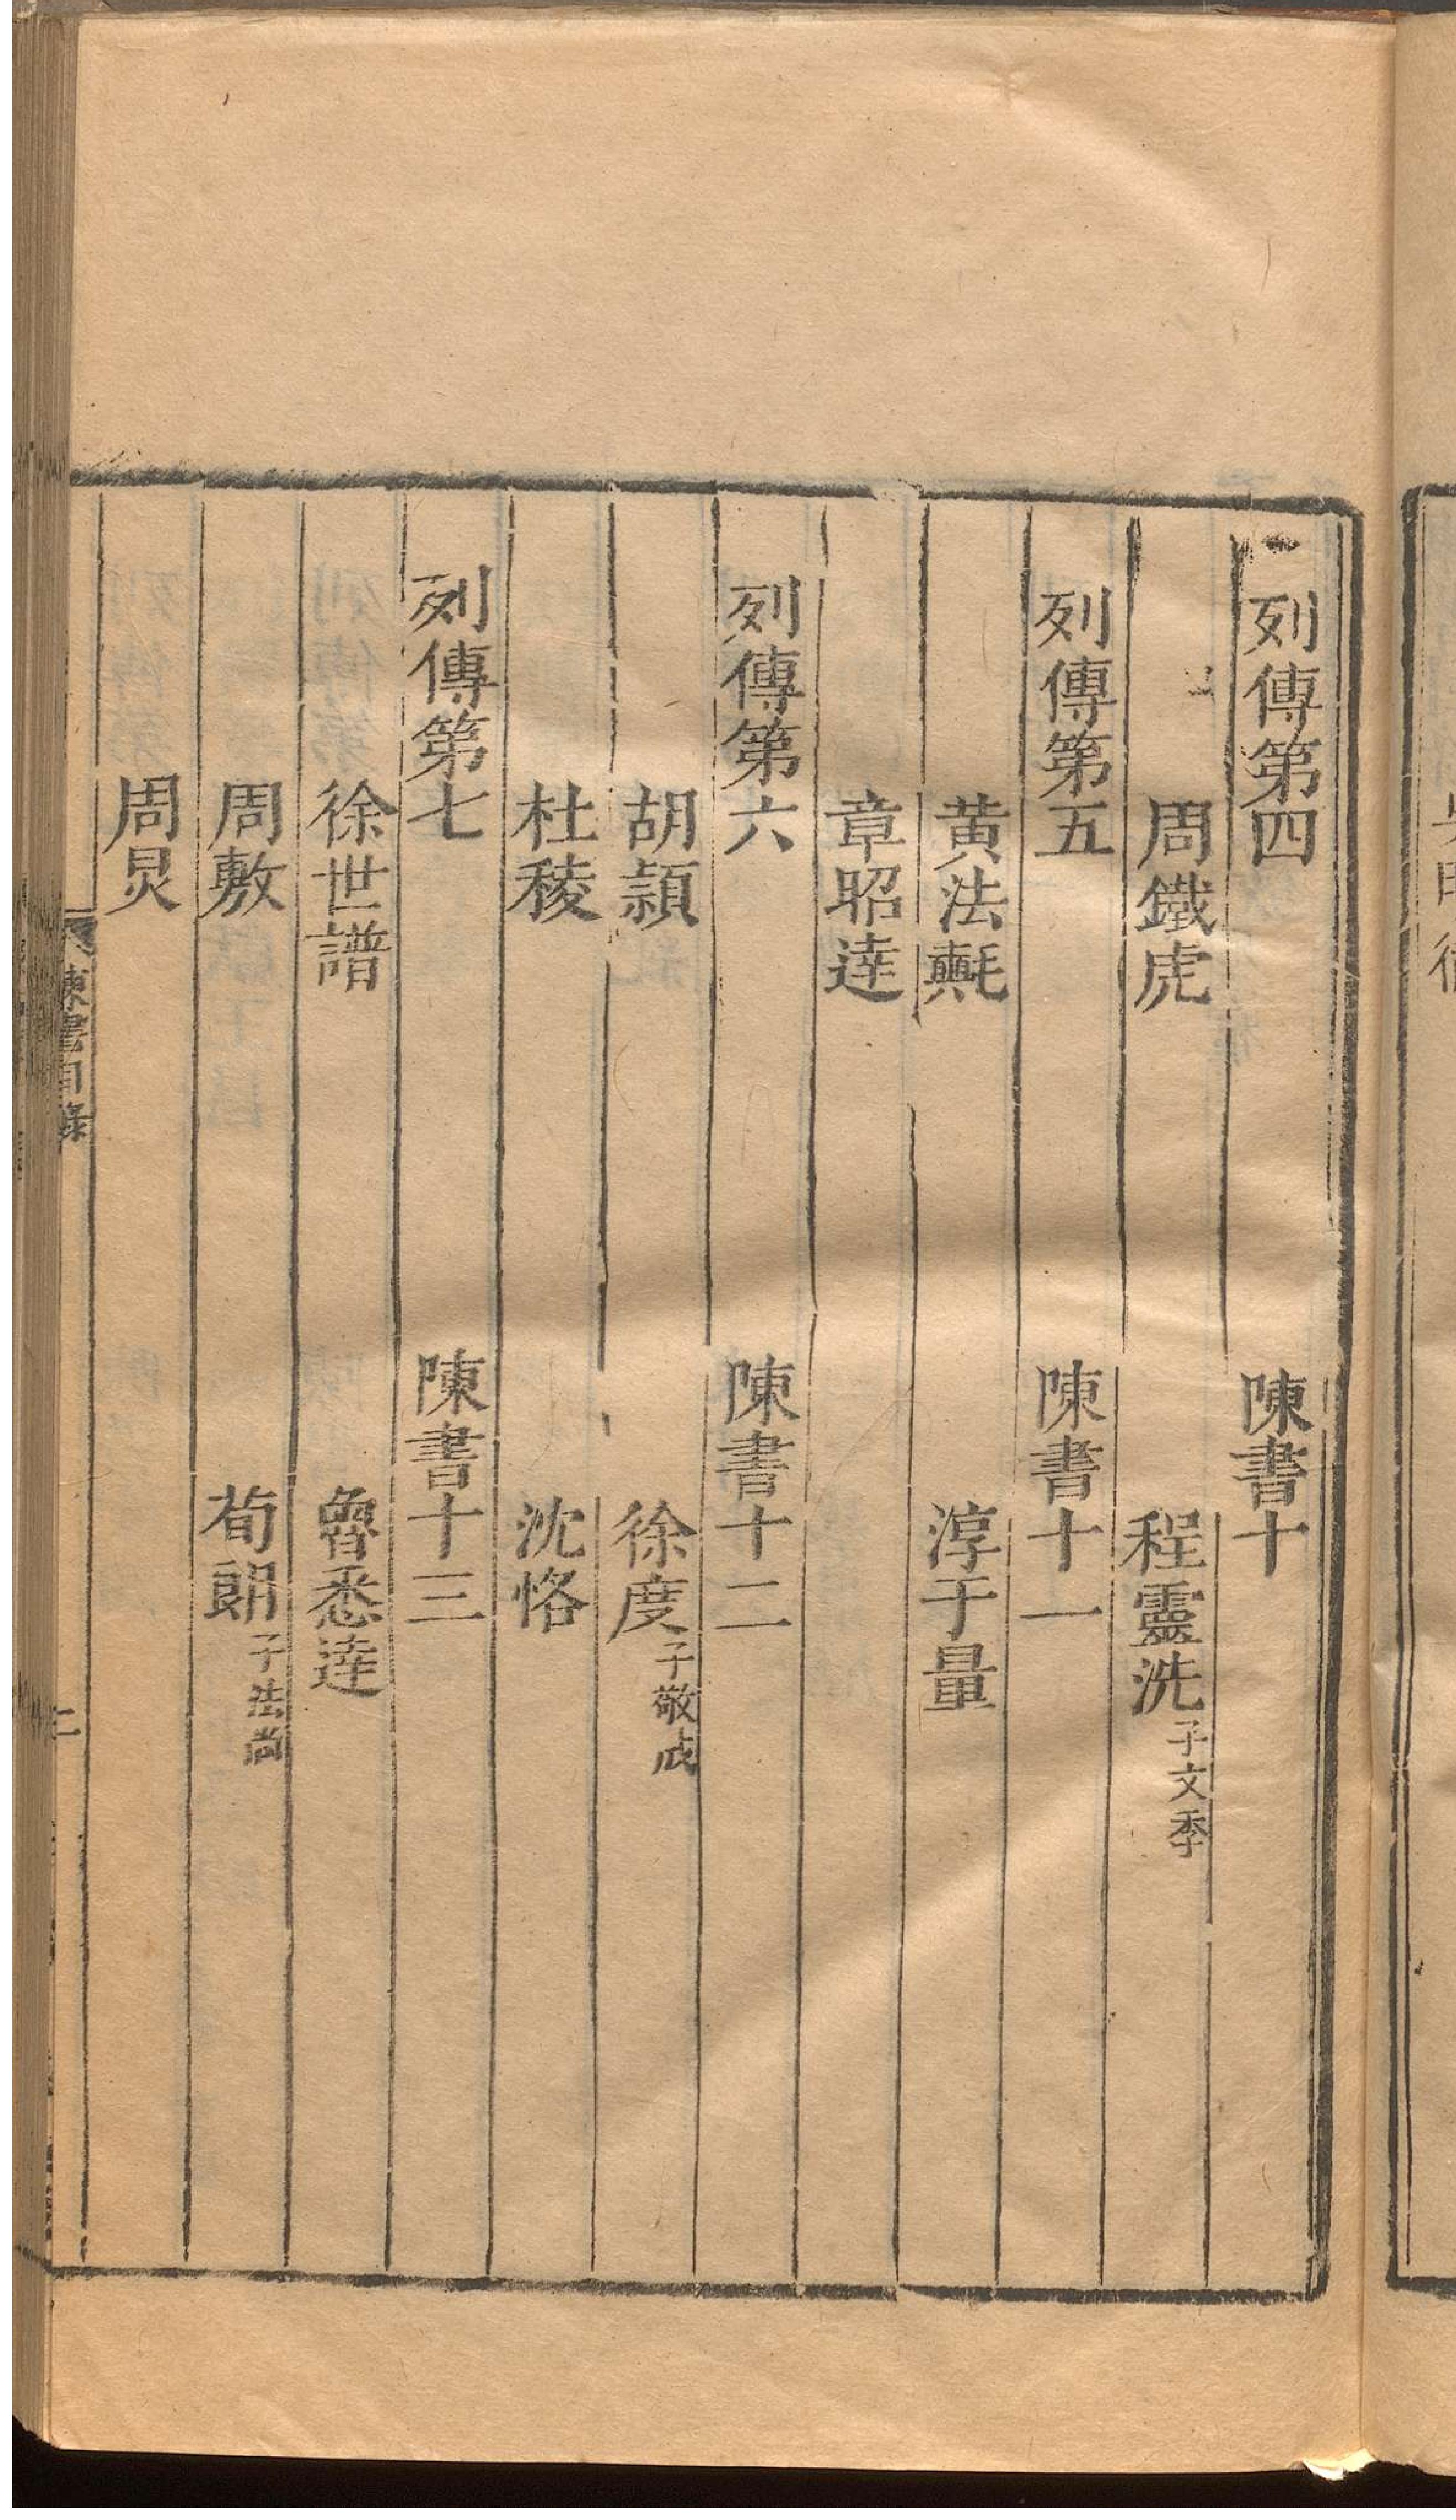 列傳第四 陳書十
周鐵虎 程靈洗子文季
列傳第五 陳書十一
黃法𣰋 淳于量
章昭達
列傳第六 陳書十二
胡穎 徐度子敬成
杜稜 沈恪
列傳第七 陳書十三
徐世譜 魯悉達
周敷 荀朗子法尚
周炅
陳書目錄 二